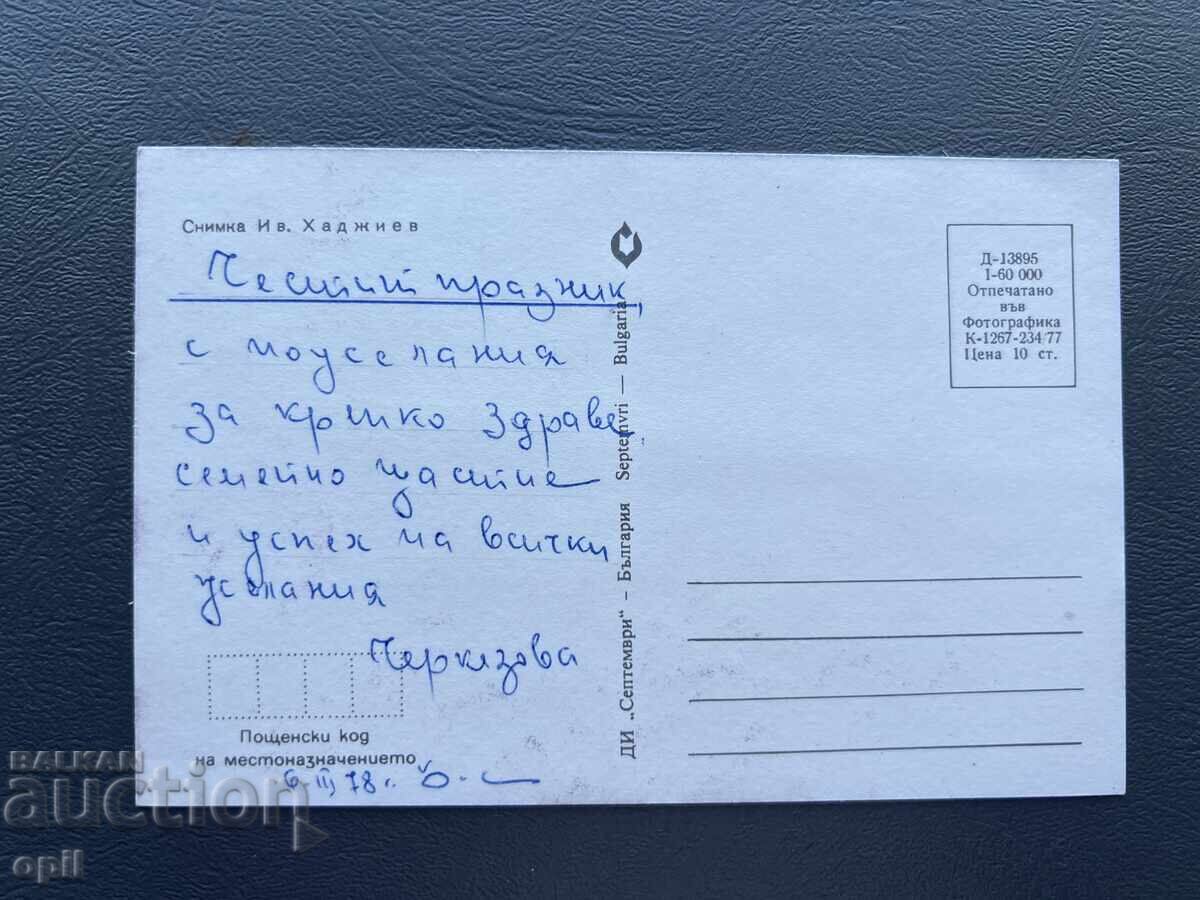 Снимка Ив. Хаджиев
Честит празник,
с пожелания
за крепко здраве
семейно щастие
и успех на всички
желания
Черкезова
Пощенски код
на местоназначението
78 г.
ДИ „Септември“ – България Septemvri — Bulgaria
Д-13895
1-60 000
Отпечатано
във
Фотографика
К-1267-234/77
Цена 10 ст.
BALKAN
auction
opil